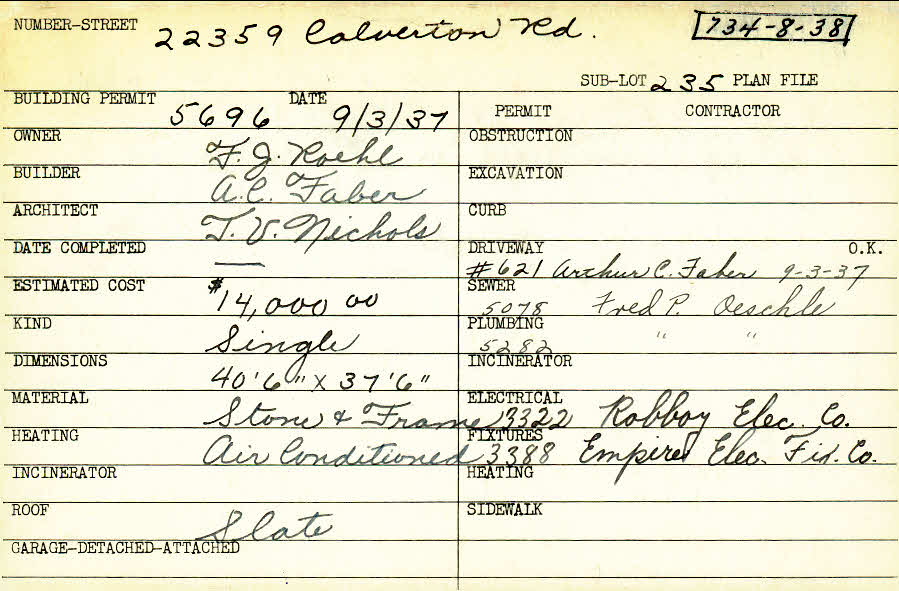 NUMBER-STREET 22359 Calverton Rd. 734-8-38
SUB-LOT 235 PLAN FILE
BUILDING PERMIT 5696 DATE 9/3/37
PERMIT CONTRACTOR
OWNER F. J. Roehl
OBSTRUCTION
BUILDER A.C. Faber
EXCAVATION
ARCHITECT T. V. Nichols
CURB
DATE COMPLETED —
DRIVEWAY O.K.
#621 Arthur C. Faber 9-3-37
ESTIMATED COST $14,000 00
SEWER 5078 Fred P. Oeschle
KIND Single
PLUMBING 5282 " "
DIMENSIONS 40'6" X 37'6"
INCINERATOR
MATERIAL Stone & Frame
ELECTRICAL 3322 Robboy Elec. Co.
HEATING Air Conditioned
FIXTURES 3388 Empire Elec. Fix. Co.
INCINERATOR
HEATING
ROOF Slate
SIDEWALK
GARAGE-DETACHED-ATTACHED